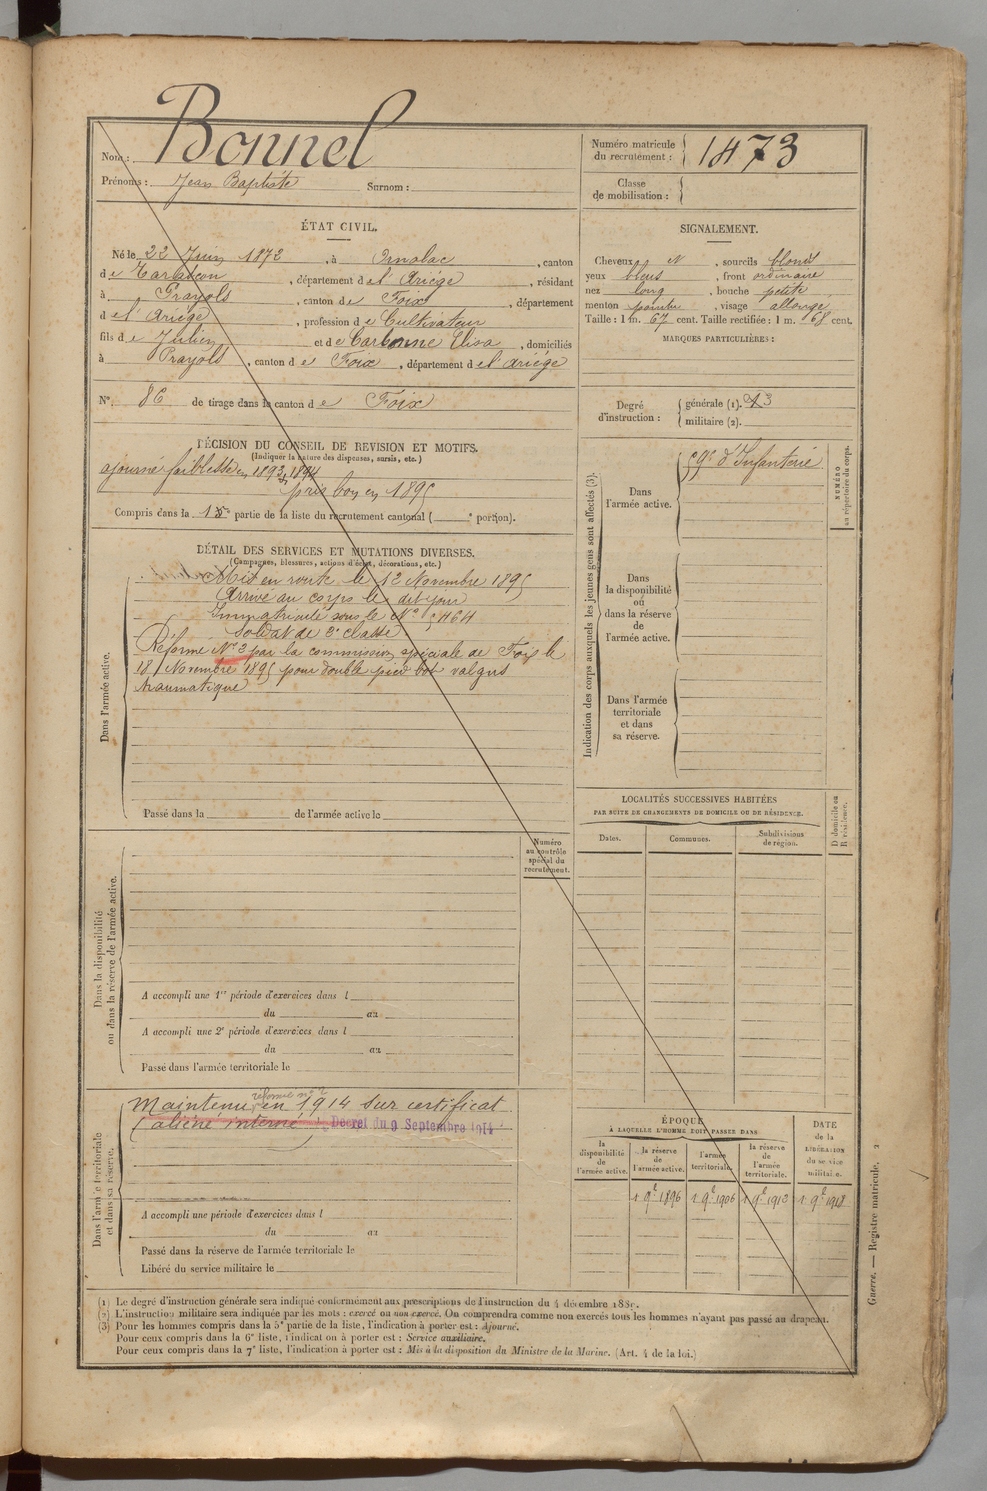 Nom : Bonnel
Prénoms : Jean Baptiste Surnom :
Numéro matricule du recrutement : 1473
Classe de mobilisation :
ÉTAT CIVIL.
Né le 22 Juin 1872, à Ornolac, canton
de Tarascon, département de l'Ariége, résidant
à Prayols, canton de Foix, département
de l'Ariége, profession de Cultivateur
fils de Julien et de Carbonne Elisa, domiciliés
à Prayols, canton de Foix, département de l'Ariége
N° 86 de tirage dans le canton de Foix
SIGNALEMENT.
Cheveux et N, sourcils blond
yeux bleus, front ordinaire
nez long, bouche petite
menton pointu, visage allongé
Taille : 1 m. 67 cent. Taille rectifiée : 1 m. 68 cent.
MARQUES PARTICULIÈRES :
Degré d'instruction :
générale (1). 3
militaire (2).
DÉCISION DU CONSEIL DE REVISION ET MOTIFS.
(Indiquer la nature des dispenses, sursis, etc.)
ajourné faiblesse en 1893, 1894
pris bon en 1895
Compris dans la partie de la liste du recrutement cantonal ( e portion).
DÉTAIL DES SERVICES ET MUTATIONS DIVERSES.
(Campagnes, blessures, actions d'éclat, décorations, etc.)
Dans l'armée active.
Mis en route le 12 Novembre 1895
Arrivé au corps le dit jour
Immatriculé sous le N° 5464
Soldat de 2e classe
Réformé N° 2 par la commission spéciale de Foix le
18 Novembre 1895 pour double pied bot valgus
traumatique
Passé dans la de l'armée active le
Indication des corps auxquels les jeunes gens sont affectés (3).
Dans l'armée active.
59e d'Infanterie
NUMÉRO au répertoire du corps.
Dans la disponibilité ou dans la réserve de l'armée active.
Dans l'armée territoriale et dans sa réserve.
LOCALITÉS SUCCESSIVES HABITÉES
PAR SUITE DE CHANGEMENTS DE DOMICILE OU DE RÉSIDENCE.
Dates. Communes. Subdivisions de région.
D domicile ou R résidence.
Numéro au contrôle spécial du recrutement.
Dans la disponibilité ou dans la réserve de l'armée active.
A accompli une 1re période d'exercices dans l
du au
A accompli une 2e période d'exercices dans l
du au
Passé dans l'armée territoriale le
Dans l'armée territoriale et dans sa réserve.
réformé n° 2
Maintenu en 1914 sur certificat
(aliéné interné) Décret du 9 Septembre 1914
A accompli une période d'exercices dans l
du au
Passé dans la réserve de l'armée territoriale le
Libéré du service militaire le
ÉPOQUE
À LAQUELLE L'HOMME DOIT PASSER DANS
la disponibilité de l'armée active.
la réserve de l'armée active.
l'armée territoriale.
la réserve de l'armée territoriale.
DATE de la LIBÉRATION du service militaire.
1 9e 1896 1 9e 1906 1 9e 1912 1 9e 1918
(1) Le degré d'instruction générale sera indiqué conformément aux prescriptions de l'instruction du 4 décembre 1889.
(2) L'instruction militaire sera indiquée par les mots : exercé ou non exercé. On comprendra comme non exercés tous les hommes n'ayant pas passé au drapeau.
(3) Pour les hommes compris dans la 5e partie de la liste, l'indication à porter est : Ajourné.
Pour ceux compris dans la 6e liste, l'indication à porter est : Service auxiliaire.
Pour ceux compris dans la 7e liste, l'indication à porter est : Mis à la disposition du Ministre de la Marine. (Art. 4 de la loi.)
Guerre. — Registre matricule. 2